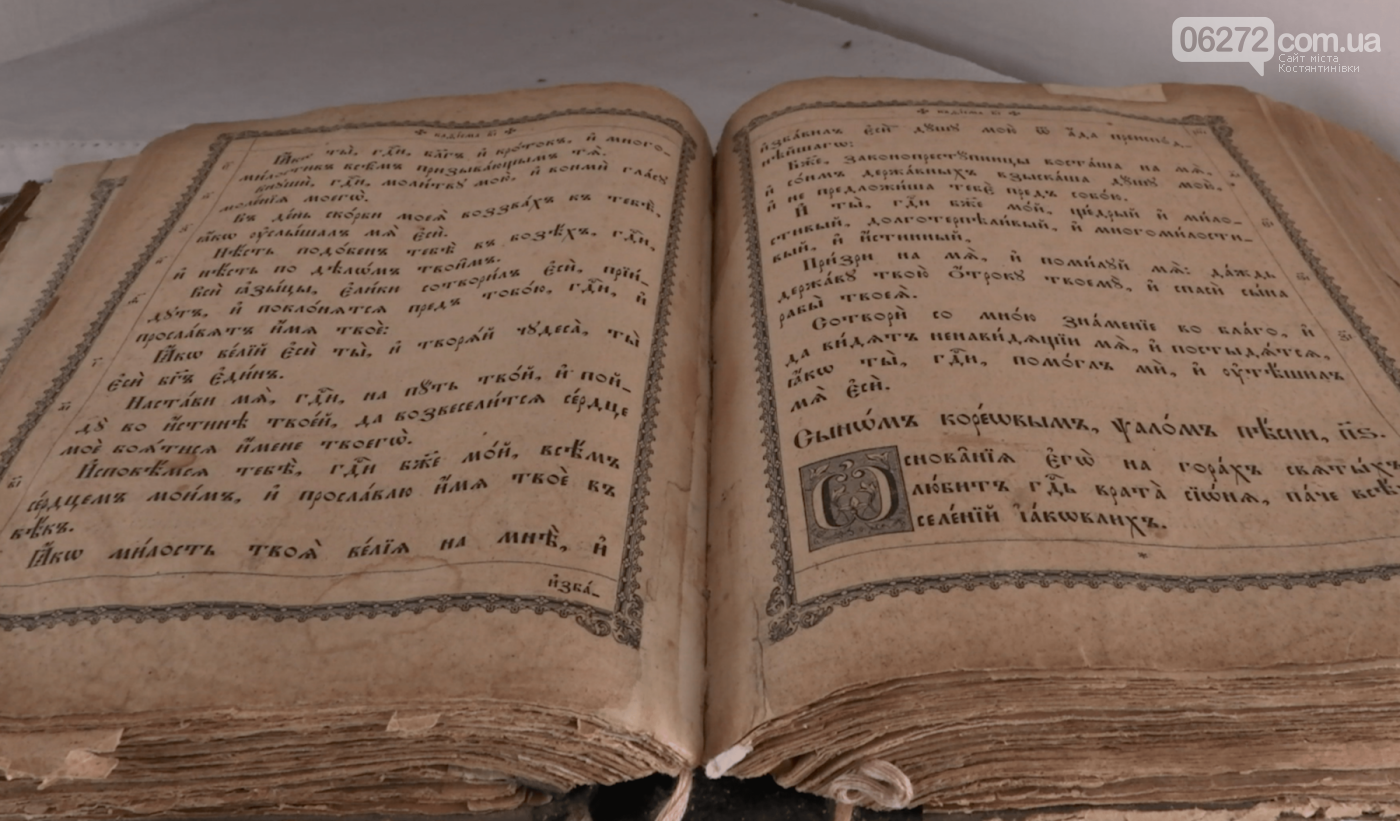 06272 com.ua
Сайт міста
Костянтинівки
Ꙗ҆́кѡ ты̀, гдⷭ҇и, бл҃гъ и҆ кро́токъ, и҆ много-
мл́стивъ всѣ̑мъ призыва́ющымъ тѧ̀.
Внꙋшѝ, гдⷭ҇и, моли́твꙋ мою̀, и҆ вонмѝ гла́сꙋ
моле́нїѧ моегѡ̀.
Въ де́нь ско́рби моеѧ̀ воззва́хъ къ тебѣ̀,
ꙗ҆́кѡ ᲂу҆слы́шалъ мѧ̀ є҆сѝ.
Нѣ́сть подо́бенъ тебѣ̀ въ бозѣ́хъ, гдⷭ҇и,
и҆ нѣ́сть по дѣлѡ́мъ твои̑мъ.
Всѝ ꙗ҆зы́цы, є҆ли́ки сотвори́лъ є҆сѝ, прїи́-
дꙋтъ, и҆ покло́нѧтсѧ пред̾ тобо́ю, гдⷭ҇и, и҆
просла́вѧтъ и҆́мѧ твоѐ:
Ꙗ҆́кѡ ве́лїй є҆сѝ ты̀, и҆ творѧ́й чꙋдеса̀, ты̀
є҆сѝ бг҃ъ є҆ди́нъ.
Наста́ви мѧ̀, гдⷭ҇и, на пꙋ́ть тво́й, и҆ пой-
дꙋ̀ во и҆́стинѣ твое́й, да возвесели́тсѧ се́рдце
моѐ боѧ́тисѧ и҆́мене твоегѡ̀.
И҆сповѣ́мсѧ тебѣ̀, гдⷭ҇и бж҃е мо́й, всѣ́мъ
се́рдцемъ мои́мъ, и҆ просла́влю и҆́мѧ твоѐ въ
вѣ́къ.
Ꙗ҆́кѡ ми́лость твоѧ̀ ве́лїѧ на мнѣ̀, и҆
и҆зба́-
и҆зба́вилъ є҆сѝ дꙋ́шꙋ мою̀ ѿ а҆́да преиспо́д-
нѣйшагѡ:
Бж҃е, законопрестꙋ́пницы воста́ша на мѧ̀,
и҆ со́нмъ держа́вныхъ взыска́ша дꙋ́шꙋ мою̀,
и҆ не предложи́ша тебє̀ пред̾ собо́ю.
И҆ ты̀, гдⷭ҇и бж҃е мо́й, ще́дрый и҆ ми́ло-
стивый, долготерпѣли́вый, и҆ многоми́лости-
вый, и҆ и҆́стинный,
При́зри на мѧ̀, и҆ поми́лꙋй мѧ̀: да́ждь
держа́вꙋ твою̀ ѻ҆́трокꙋ твоемꙋ̀, и҆ спасѝ сы́на
рабы̀ твоеѧ̀.
Сотворѝ со мно́ю зна́менїе во бла́го, и҆
да ви́дѧтъ ненави́дѧщїи мѧ̀, и҆ постыдѧ́тсѧ,
ꙗ҆́кѡ ты̀, гдⷭ҇и, помо́глъ мѝ, и҆ ᲂу҆тѣ́шилъ
мѧ̀ є҆сѝ.
Сынѡ́мъ коре́ѡвымъ, ѱало́мъ пѣ́сни, п҃ѕ.
Ѡ҆снова̑нїѧ є҆гѡ̀ на гора́хъ свѧты́хъ
лю́битъ гдⷭ҇ь врата̀ сїѡ̑нѧ, па́че всѣ́хъ
селе́нїй і҆а́кѡвлихъ.